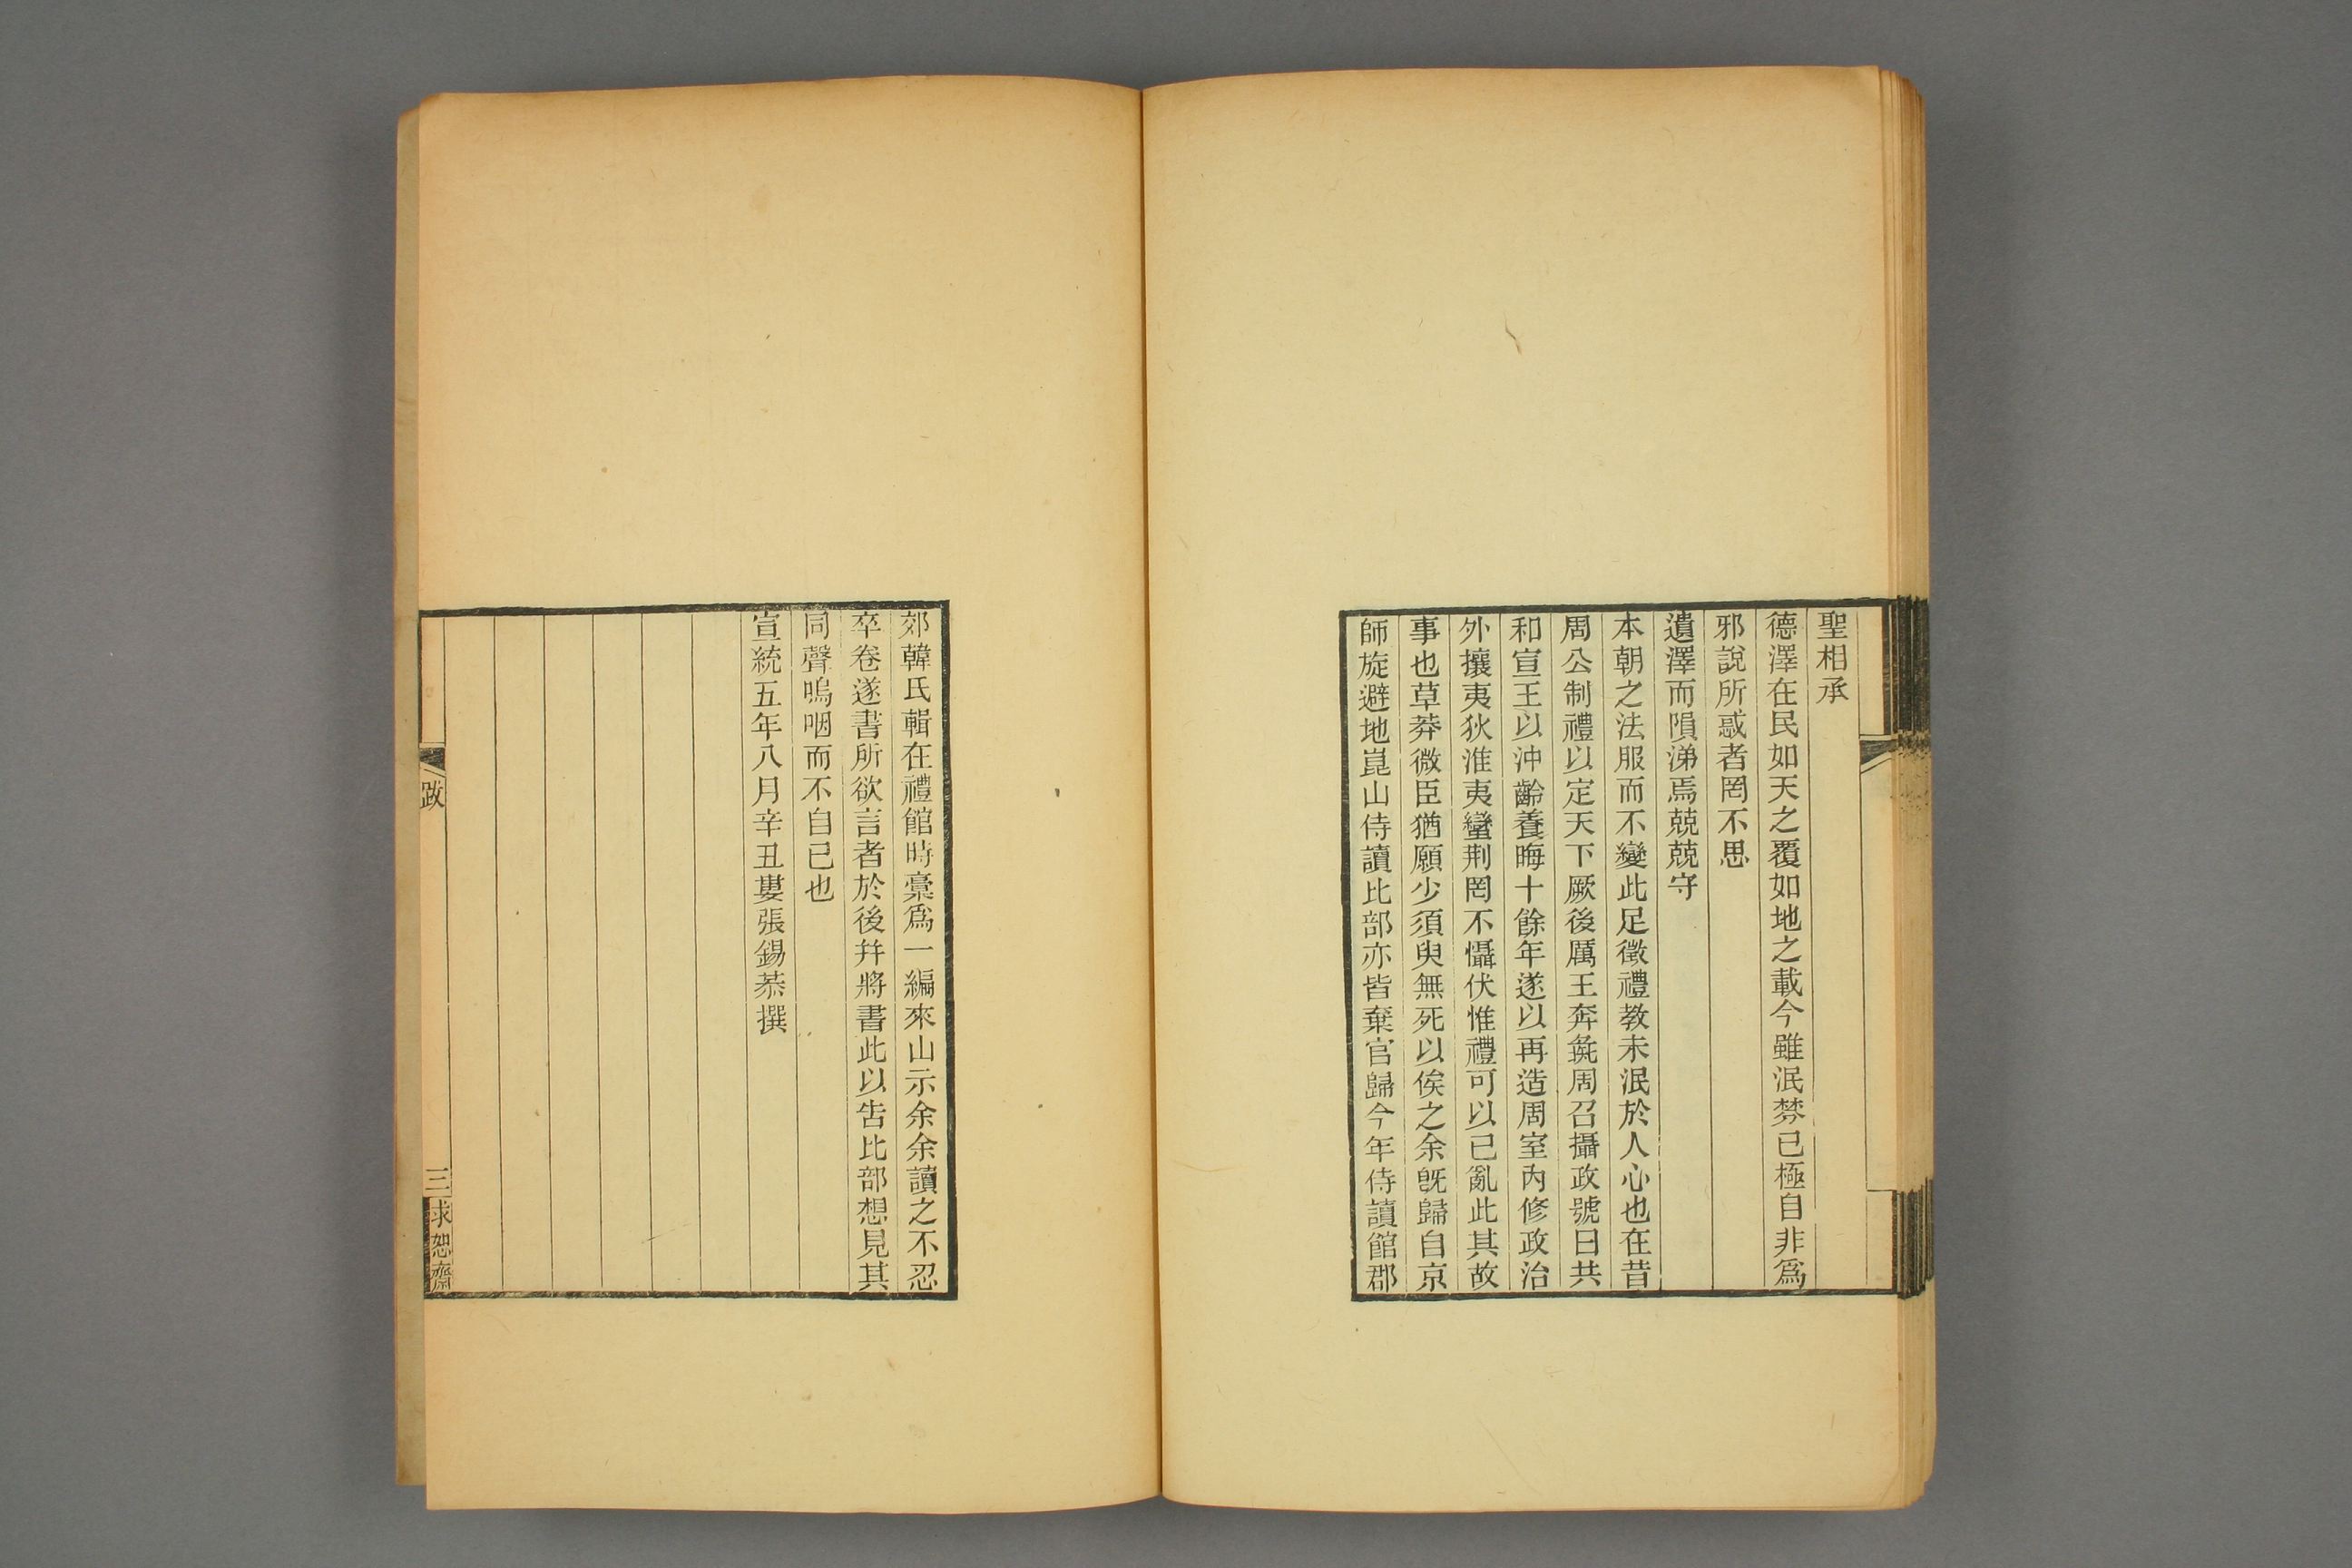 聖相承
德澤在民如天之覆如地之載今雖泯棼已極自非爲
邪說所惑者罔不思
遺澤而隕涕焉兢兢守
本朝之法服而不變此足徵禮教未泯於人心也在昔
周公制禮以定天下厥後厲王奔彘周召攝政號曰共
和宣王以沖齡養晦十餘年遂以再造周室內修政治
外攘夷狄淮夷蠻荆罔不懾伏惟禮可以已亂此其故
事也草莽微臣猶願少須臾無死以俟之余旣歸自京
師旋避地崑山侍讀比部亦皆棄官歸今年侍讀館郡
郊韓氏輯在禮館時稾爲一編來山示余余讀之不忍
卒卷遂書所欲言者於後幷將書此以告比部想見其
同聲嗚咽而不自已也
宣統五年八月辛丑婁張錫恭撰
跋
三
求恕齋